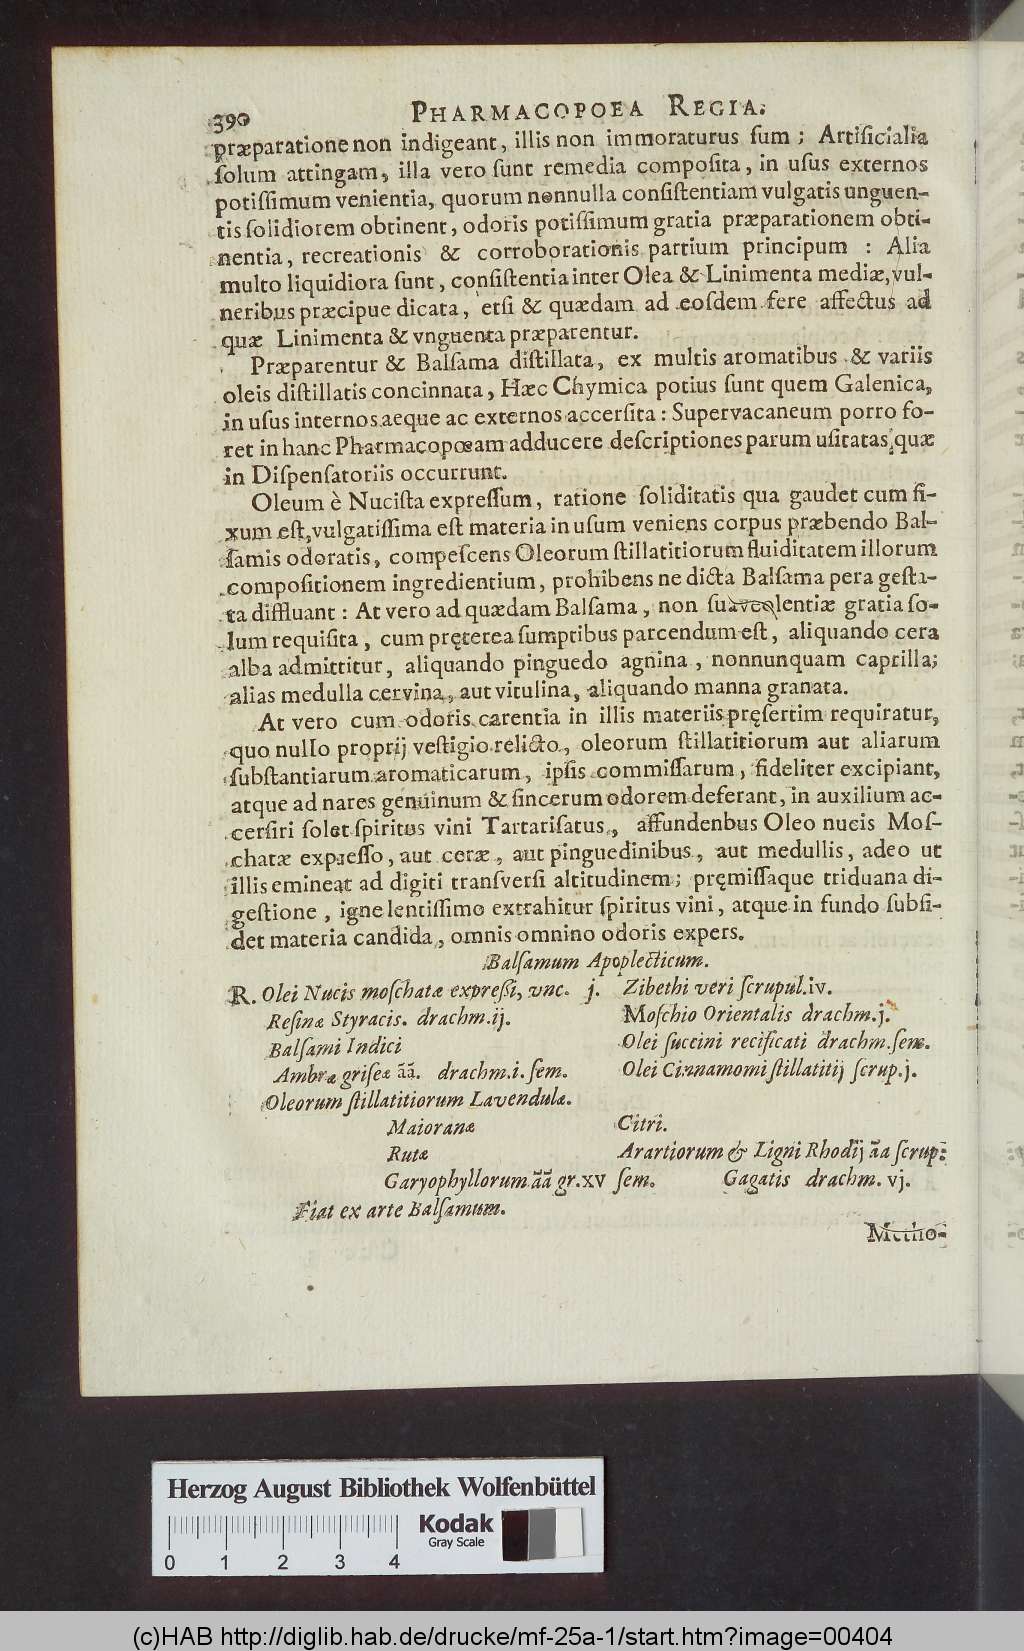 390 PHARMACOPOEA REGIA.
præparatione non indigeant, illis non immoraturus ſum ; Artificialia
ſolum attingam, illa vero ſunt remedia compoſita, in uſus externos
potiſſimum venientia, quorum nonnulla conſiſtentiam vulgatis unguen-
tis ſolidiorem obtinent, odoris potiſſimum gratia præparationem obti-
nentia, recreationis & corroborationis partium principum : Alia
multo liquidiora ſunt, conſiſtentia inter Olea & Linimenta mediæ, vul-
neribus præcipue dicata, etſi & quædam ad eoſdem fere affectus ad
quæ Linimenta & vnguenta præparentur.
Præparentur & Balſama diſtillata, ex multis aromatibus & variis
oleis diſtillatis concinnata, Hæc Chymica potius ſunt quem Galenica,
in uſus internos aeque ac externos accerſita : Supervacaneum porro fo-
ret in hanc Pharmacopœam adducere deſcriptiones parum uſitatas, quæ
in Diſpenſatoriis occurrunt.
Oleum è Nuciſta expreſſum, ratione ſoliditatis qua gaudet cum fi-
xum eſt, vulgatiſſima eſt materia in uſum veniens corpus præbendo Bal-
ſamis odoratis, compeſcens Oleorum ſtillatitiorum fluiditatem illorum
compoſitionem ingredientium, prohibens ne dicta Balſama pera geſta-
ta diffluant : At vero ad quædam Balſama, non ſuaveolentiæ gratia ſo-
lum requiſita, cum pręterea ſumptibus parcendum eſt, aliquando cera
alba admittitur, aliquando pinguedo agnina, nonnunquam caprilla;
alias medulla cervina, aut vitulina, aliquando manna granata.
At vero cum odoris carentia in illis materiis pręſertim requiratur,
quo nullo proprij veſtigio relicto, oleorum ſtillatitiorum aut aliarum
ſubſtantiarum aromaticarum, ipſis commiſſarum, fideliter excipiant,
atque ad nares genuinum & ſincerum odorem deferant, in auxilium ac-
cerſiri ſolet ſpiritus vini Tartariſatus, affundenbus Oleo nucis Moſ-
chatæ expreſſo, aut ceræ, aut pinguedinibus, aut medullis, adeo ut
illis emineat ad digiti tranſverſi altitudinem; pręmiſſaque triduana di-
geſtione, igne lentiſſimo extrahitur ſpiritus vini, atque in fundo ſubſi-
det materia candida, omnis omnino odoris expers.
Balſamum Apoplecticum.
R. Olei Nucis moſchatæ expreßi, vnc. j. Zibethi veri ſcrupul. iv.
Reſinæ Styracis. drachm. ij. Moſchio Orientalis drachm. j.
Balſami Indici Olei ſuccini recificati drachm. ſem.
Ambræ griſeæ āā. drachm. i. ſem. Olei Cinnamomi ſtillatitij ſcrup. j.
Oleorum ſtillatitiorum Lavendulæ.
Maioranæ Citri.
Rutæ Arartiorum & Ligni Rhodij āa ſcrup:
Garyophyllorum āā gr. xv ſem. Gagatis drachm. vj.
Fiat ex arte Balſamum.
Metho-
Herzog August Bibliothek Wolfenbüttel
Kodak
Gray Scale
0 1 2 3 4
(c)HAB http://diglib.hab.de/drucke/mf-25a-1/start.htm?image=00404